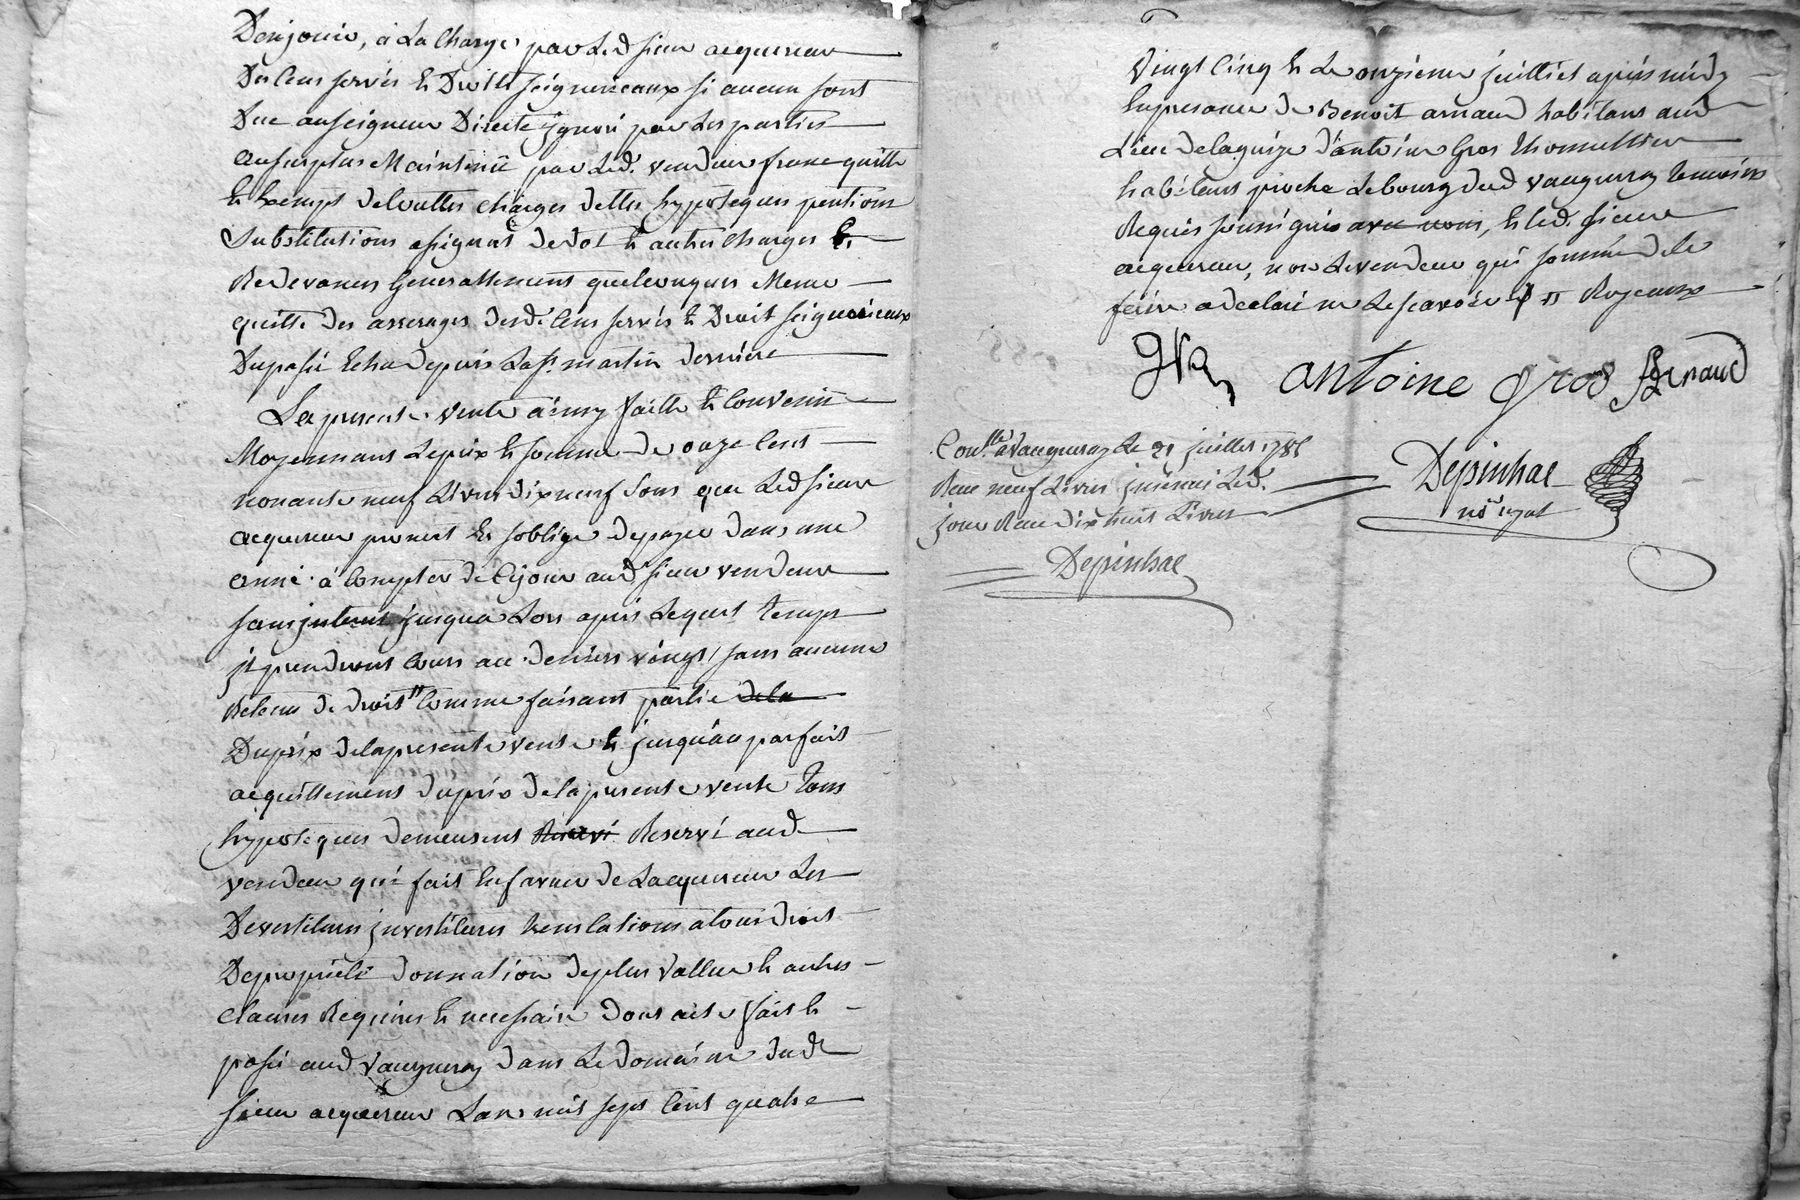 Denjouir, a la Charge par led sieur acquereur
Des Cens servis et Droitts seigneuriaux si aucun sont
Due au seigneur Directe ygnoré par les parties
au surplus Maintenüe par led. vendeur franc quitte
et Exempt de touttes charges dettes hypoteques pentions
Substitutions assignat de dot et autres charges et
Redevances Generallement quelconques Meme
quitte des arrerages desd. Cens servis et Droit seigneuriaux
Dupassé Echu depuis la st. martin derniere
La presente vente ainsy faitte et Convenüe
Moyennant le prix et somme de onze Cent
nonante neuf Livres dix neuf sous que led sieur
acquereur promet et s'oblige de payer dans une
année à Compter de Cejour aud sieur vendeur
sans jnterest jusqua Lors apres lequel temps
jl prendront Cours au deniers vingt / sans aucune
Retenue de droit comme faisant partie de la
Duprix delapresente vente et jusqu'au parfait
acquittement duprix de lapresente vente tous
hypoteques demeurent Reservé Reservé aud
vendeur qui fait En faveur de Lacquereur Les
Devestitures jnvestitures translations atous droit
De propriété donnation deplus vallue et autres
clauses Requises et necessaire dont acte fait et
passé aud Vaugneray dans Le domaine dud
sieur acquereur Lan mil sept Cent quatre
Vingt Cinq et Le onzieme juilliet après midy
En presance de Benoit arnaud habitant aud
Lieu delaguize d'antoine Gros
habitant proche Lebourg dud vaugneray temoins
Requis soussignés avec nous, et led. sieur
acquereur, non Levendeur qui sommé de le
faire a declaré ne le scavoir
antoine gros Arnaud
Conlle. a Vaugneray Le 21 juillet 1785
Recu neuf Livres jnsinué Led.
jour Recu dix huit Livres
Depinhac
Depinhac
nre royal